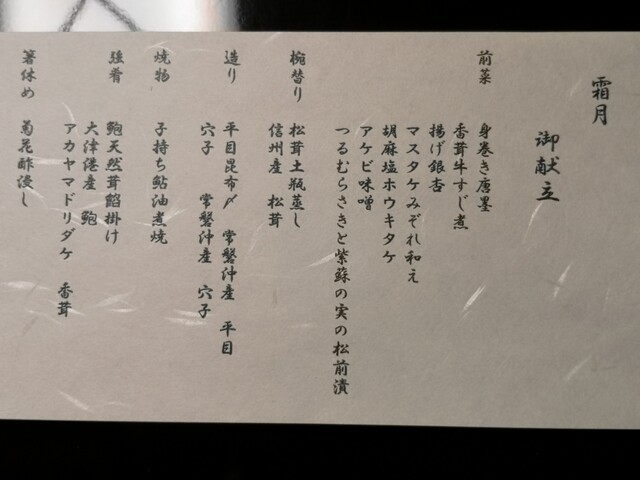 霜月
御献立
前菜 身巻き唐墨
香茸牛すじ煮
揚げ銀杏
マスタケみぞれ和え
胡麻塩ホウキタケ
アケビ味噌
つるむらさきと紫蘇の実の松前漬
椀替り 松茸土瓶蒸し
信州産 松茸
造り 平目昆布〆 常磐沖産 平目
穴子 常磐沖産 穴子
焼物 子持ち鮎油煮焼
強肴 鮑天然茸餡掛け
大津港産 鮑
アカヤマドリダケ 香茸
箸休め 菊花酢浸し